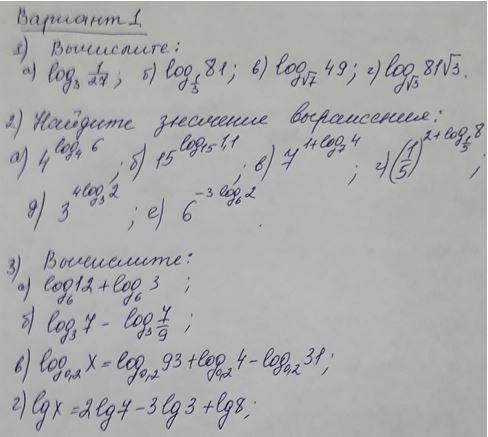 Вариант 1
1) Вычислите:
а) log₃ 1/27; б) log_{1/3} 81; в) log_{√7} 49; г) log_{√3} 81√3.
2) Найдите значение выражения:
а) 4^{log₄ 6}; б) 15^{log₁₅ 1,1}; в) 7^{1+log₇ 4}; г) (1/5)^{2+log_{1/5} 8};
д) 3^{4log₃ 2}; е) 6^{-3 log₆ 2}.
3) Вычислите:
а) log₆ 12 + log₆ 3;
б) log₃ 7 - log₃ 7/9;
в) log_{0,2} x = log_{0,2} 93 + log_{0,2} 4 - log_{0,2} 31;
г) lg x = 2lg 7 - 3lg 3 + lg 8;